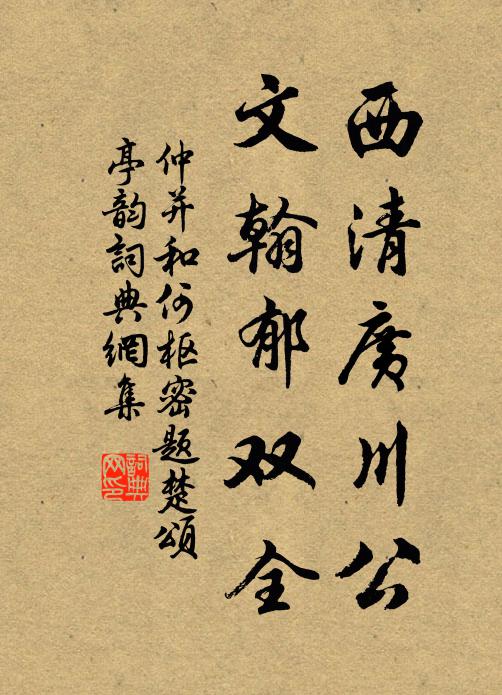 西清广川公
文翰郁双全
仲并和何枢密题楚颂
亭韵詞典網集
詞典网印